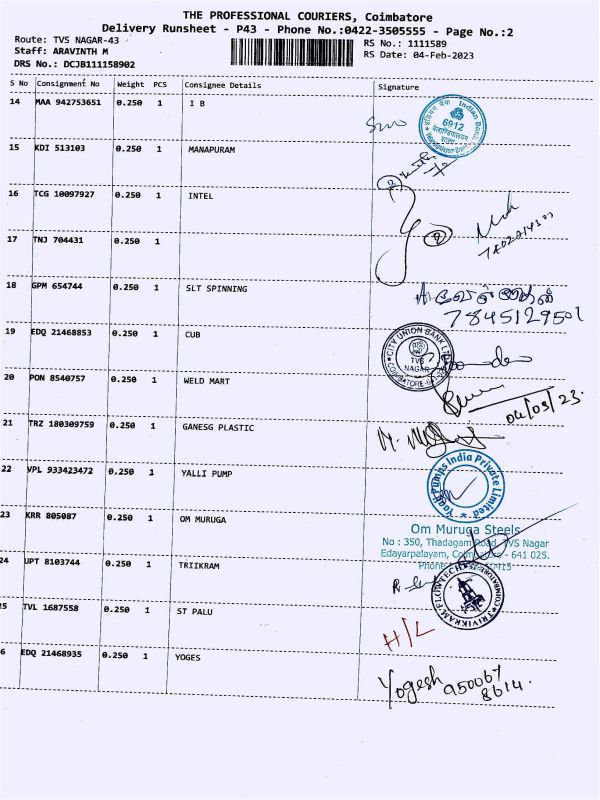 THE PROFESSIONAL COURIERS, Coimbatore
Delivery Runsheet - P43 - Phone No.:0422-3505555 - Page No.:2
Route: TVS NAGAR-43 RS No.: 1111589
Staff: ARAVINTH M RS Date: 04-Feb-2023
DRS No.: DCJB111158902
S No Consignment No Weight PCS Consignee Details Signature
14 MAA 942753651 0.250 1 I B
Indian Bank
6912
15 KDI 513103 0.250 1 MANAPURAM
16 TCG 10097927 0.250 1 INTEL
17 TNJ 704431 0.250 1
18 GPM 654744 0.250 1 SLT SPINNING
7845129501
19 EDQ 21468853 0.250 1 CUB
CITY UNION BANK LTD
TVS
NAGAR
20 PON 8540757 0.250 1 WELD MART
04/03/23.
21 TRZ 180309759 0.250 1 GANESG PLASTIC
22 VPL 933423472 0.250 1 YALLI PUMP
Pumps India Private Limited
23 KRR 805087 0.250 1 OM MURUGA
Om Muruga Steels
No : 350, Thadagam Road, TVS Nagar
Edayarpalayam, Coimbatore - 641 025.
24 UPT 8103744 0.250 1 TRIIKRAM
TRIVIKRAM FLOWTECH
25 TVL 1687558 0.250 1 ST PALU
H/L
6 EDQ 21468935 0.250 1 YOGES
Yogesh 950067
8614.